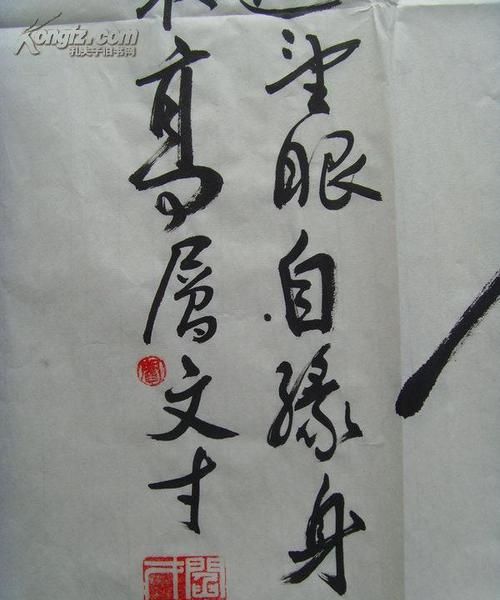 Kongfz.com
孔夫子旧书网
望眼自緣身
高層文才